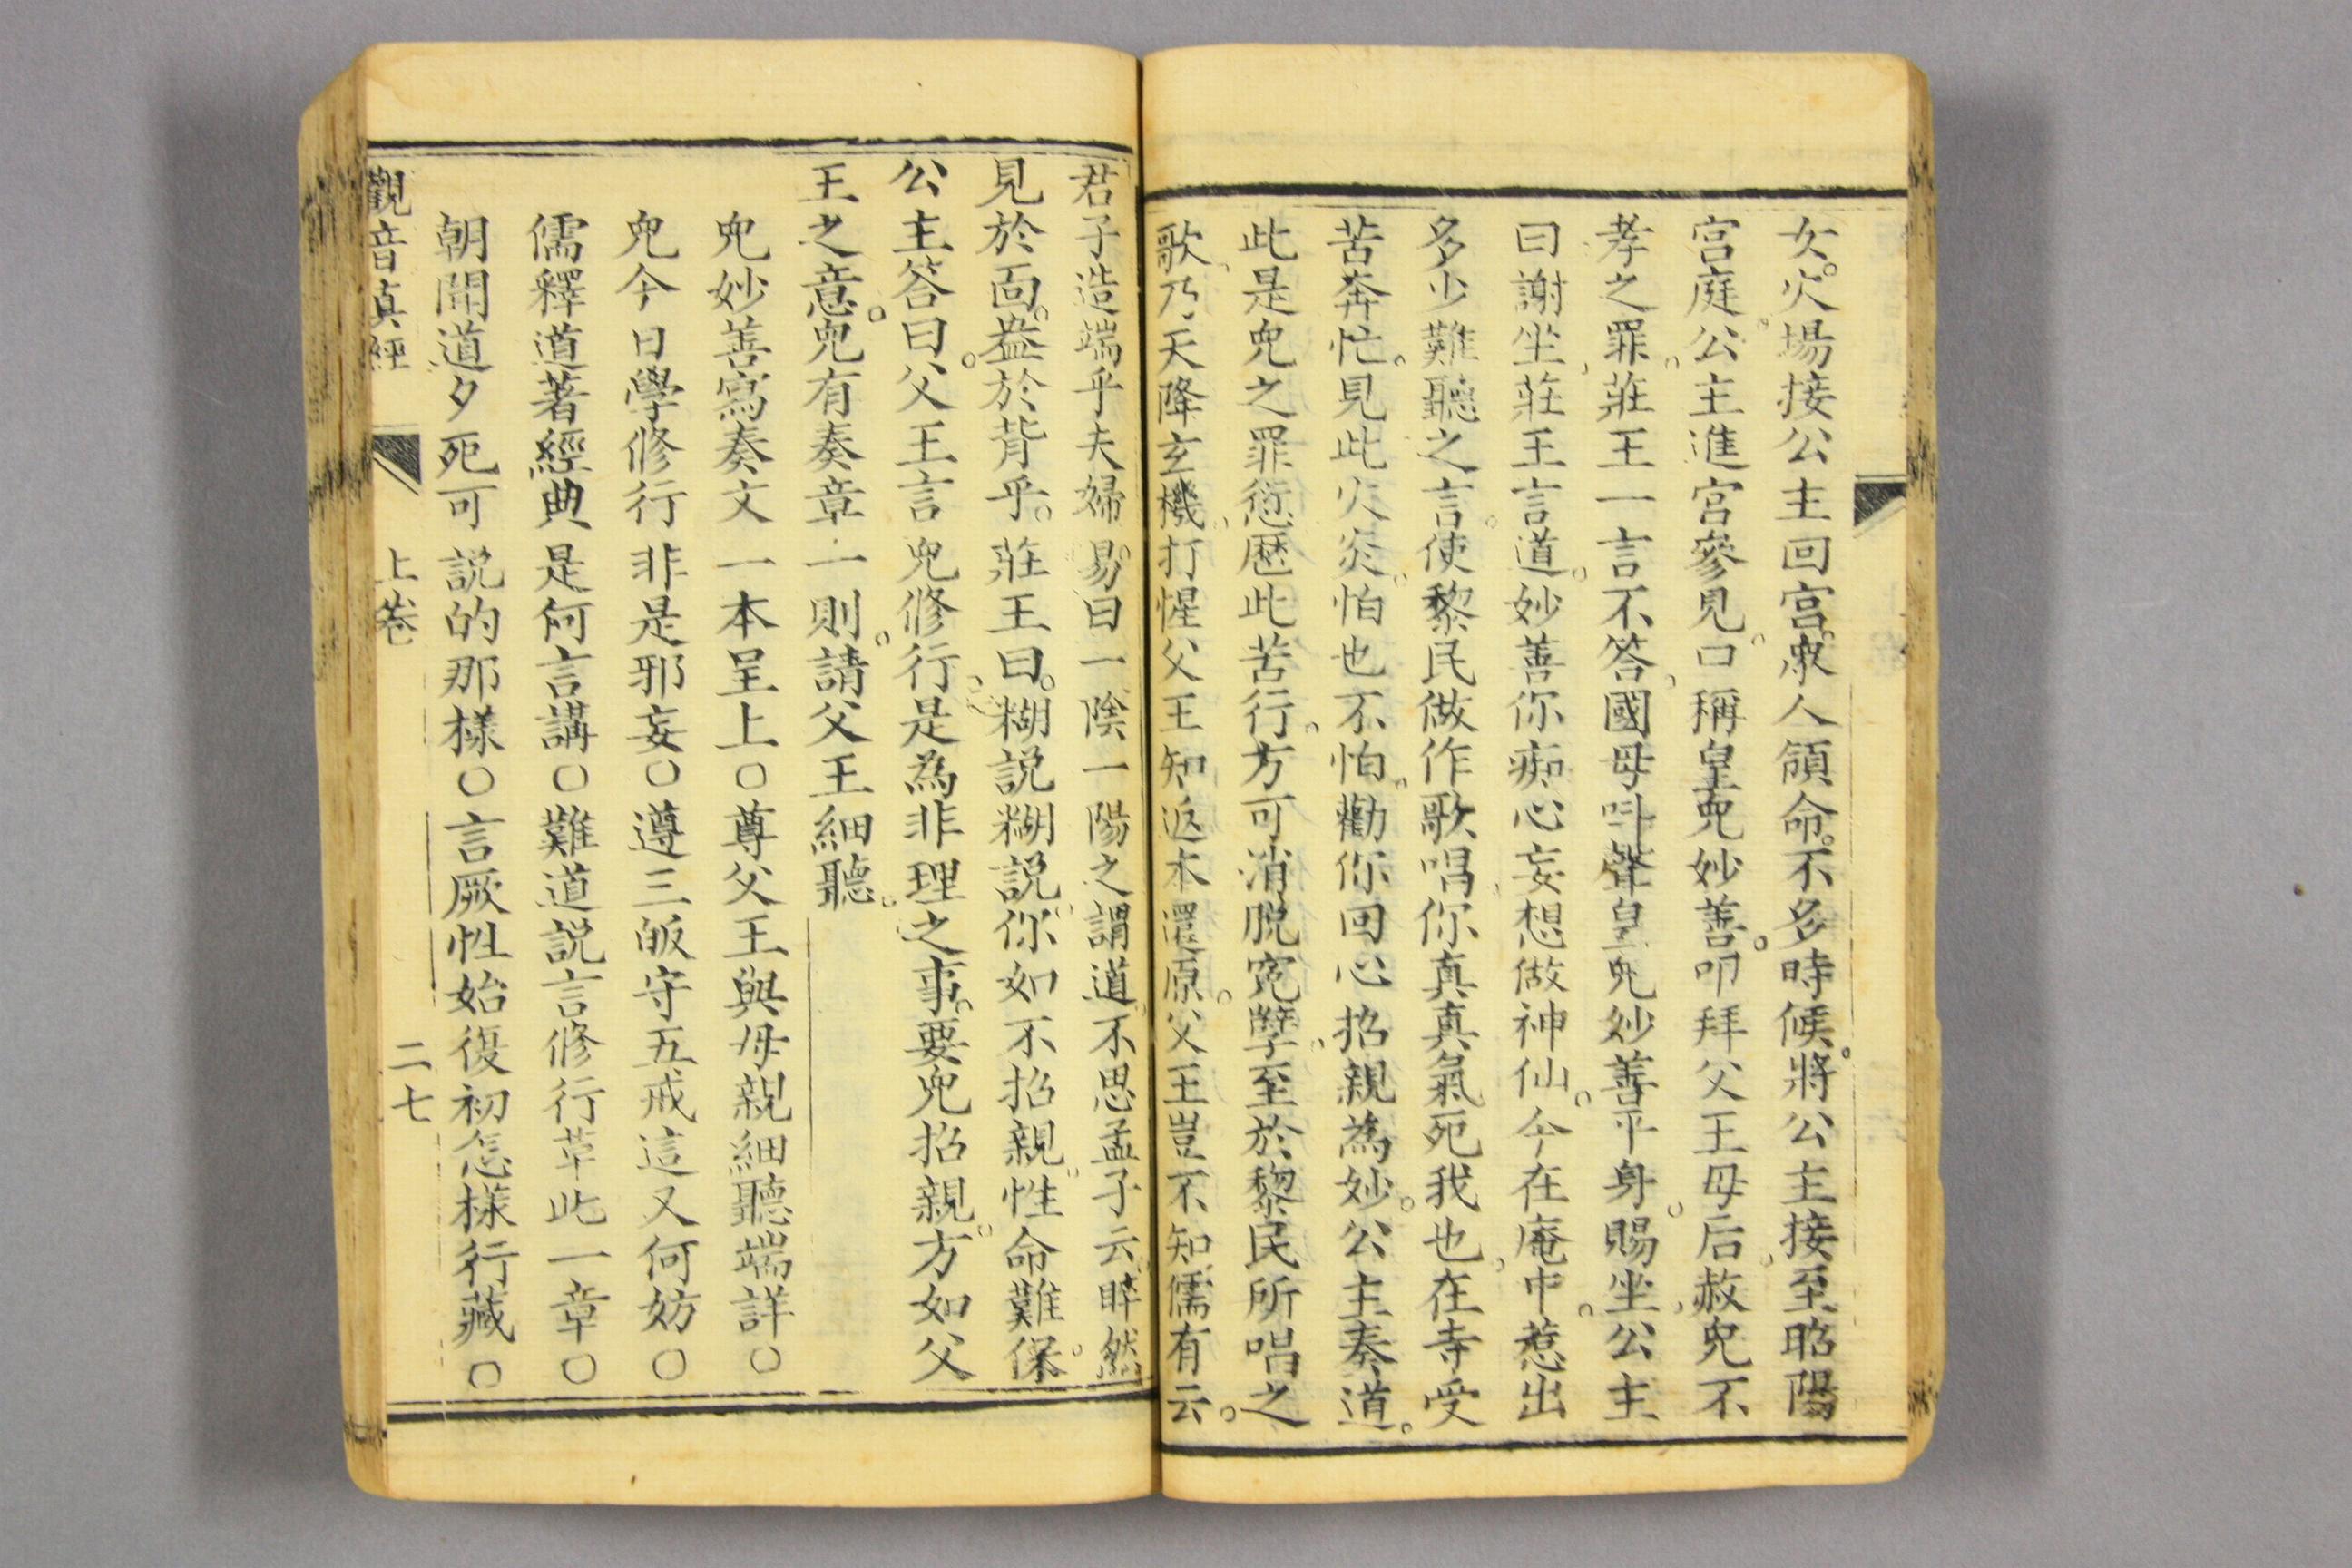 女。火場接公主回宮。衆人領命。不多時候。將公主接至昭陽
宮庭。公主進宮參見。口稱皇兒妙善。叩拜父王母后。赦兒不
孝之罪。莊王一言不答、國母呌聲皇兒妙善平身。賜坐、公主
曰謝坐、莊王言道。妙善你痴心妄想做神仙。今在庵中。惹出
多少難聽之言。使黎民做作歌唱、你真真氣死我也、在寺受
苦奔忙。見此火災。怕也不怕。勸你回心招親為妙。公主奏道。
此是兒之罪愆歷此苦行。方可消脫寃孽、至於黎民所唱之
歌、乃天降玄機、打惺父王知返本還原。父王豈不知儒有云。
君子造端乎夫婦。易曰一陰一陽之謂道、不思孟子云、睟然
見於面。盎於背乎。莊王曰。糊説糊説、你如不招親。性命難保。
公主答曰。父王言兒修行、是為非理之事。要兒招親。方如父
王之意。兒有奏章一則。請父王細聽。
兒妙善寫奏文一本呈上〇尊父王與母親細聽端詳〇
兒今日學修行非是邪妄〇遵三皈守五戒這又何妨〇
儒釋道著經典是何言講〇難道説言修行革此一章〇
朝聞道夕死可説的那樣〇言厥性始復初怎樣行藏〇
觀音真經 上卷 二七